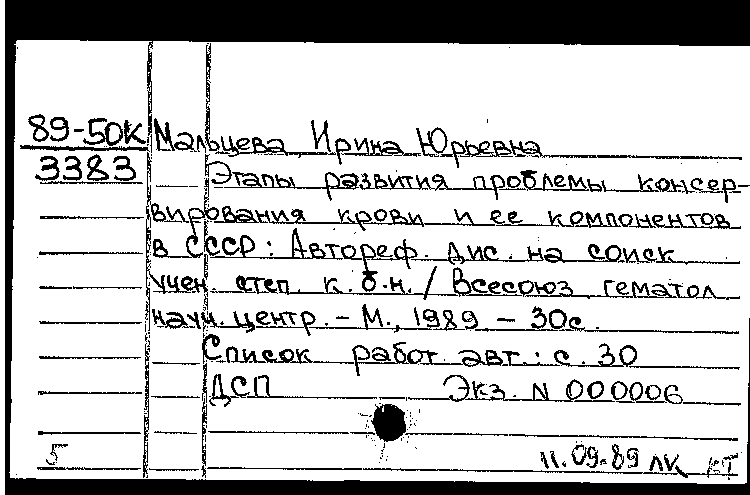 89-50К Мальцева Ирина Юрьевна
3383 Этапы развития проблемы консер-
вирования крови и ее компонентов
в СССР: Автореф. дис. на соиск
учен. степ. к.б.н. / Всесоюз. гематол
науч. центр. - М., 1989 - 30с.
Список работ авт.: с. 30
ДСП Экз. N 000006
5 11.09.89 ЛК КТ